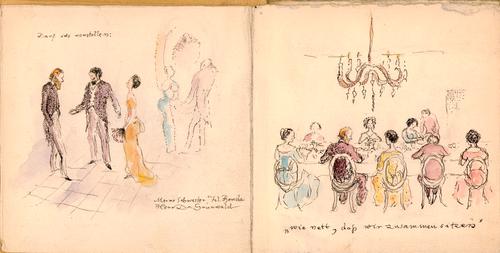 Darf ich vorstellen:
Meine Schwester Frl.
Herr Dr. Grunwald
„Wie nett, daß wir zusammen sitzen"